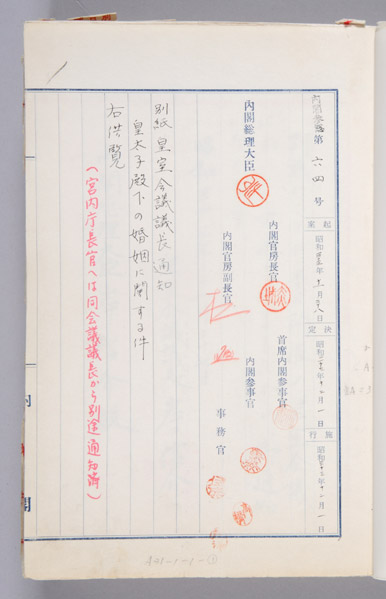 内閣参照第六四号
起案 昭和三三年十一月二八日
決定 昭和三三年十二月一日
施行 昭和三三年十二月一日
内閣総理大臣
内閣官房長官
内閣官房副長官
首席内閣参事官
内閣参事官
事務官
別紙 皇室会議議長通知
皇太子殿下の婚姻に関する件
右供覧
(宮内庁長官へは同会議議長から別途通知済)
内
閣
A41-1-1-③